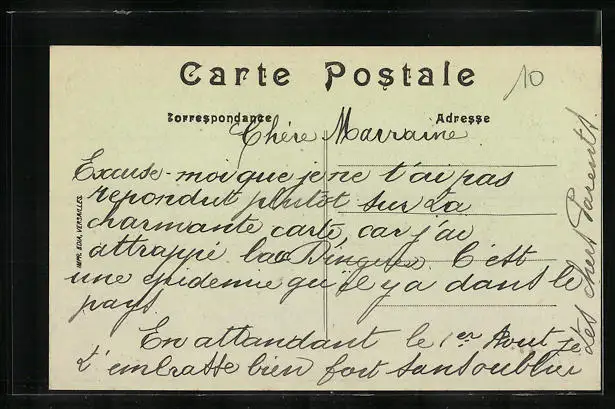 Carte Postale
10
Correspondance
Adresse
Chère Marraine
Excuse-moi que je ne t'ai pas
repondut plutôt sur ta
charmante carte, car j'ai
attrappé la Dingue. C'est
une épidemie qu'il y a dans le
pays
En attandant le 1er Aout je
t'embrasse bien fort sans oublier
tes chers Parents.
IMPR. EDIA, VERSAILLES